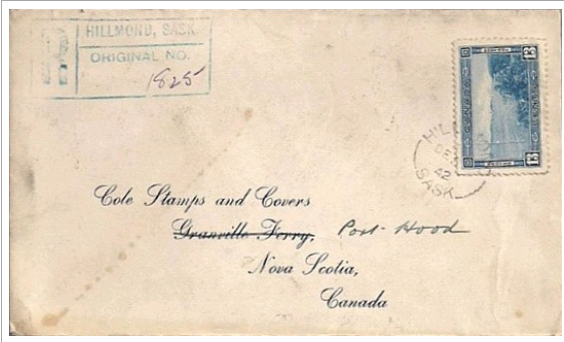 R HILLMOND, SASK.
ORIGINAL NO.
1825
13 13
CANADA
HILL
DE
42
SASK
Cole Stamps and Covers
Granville Ferry, Port Hood
Nova Scotia,
Canada